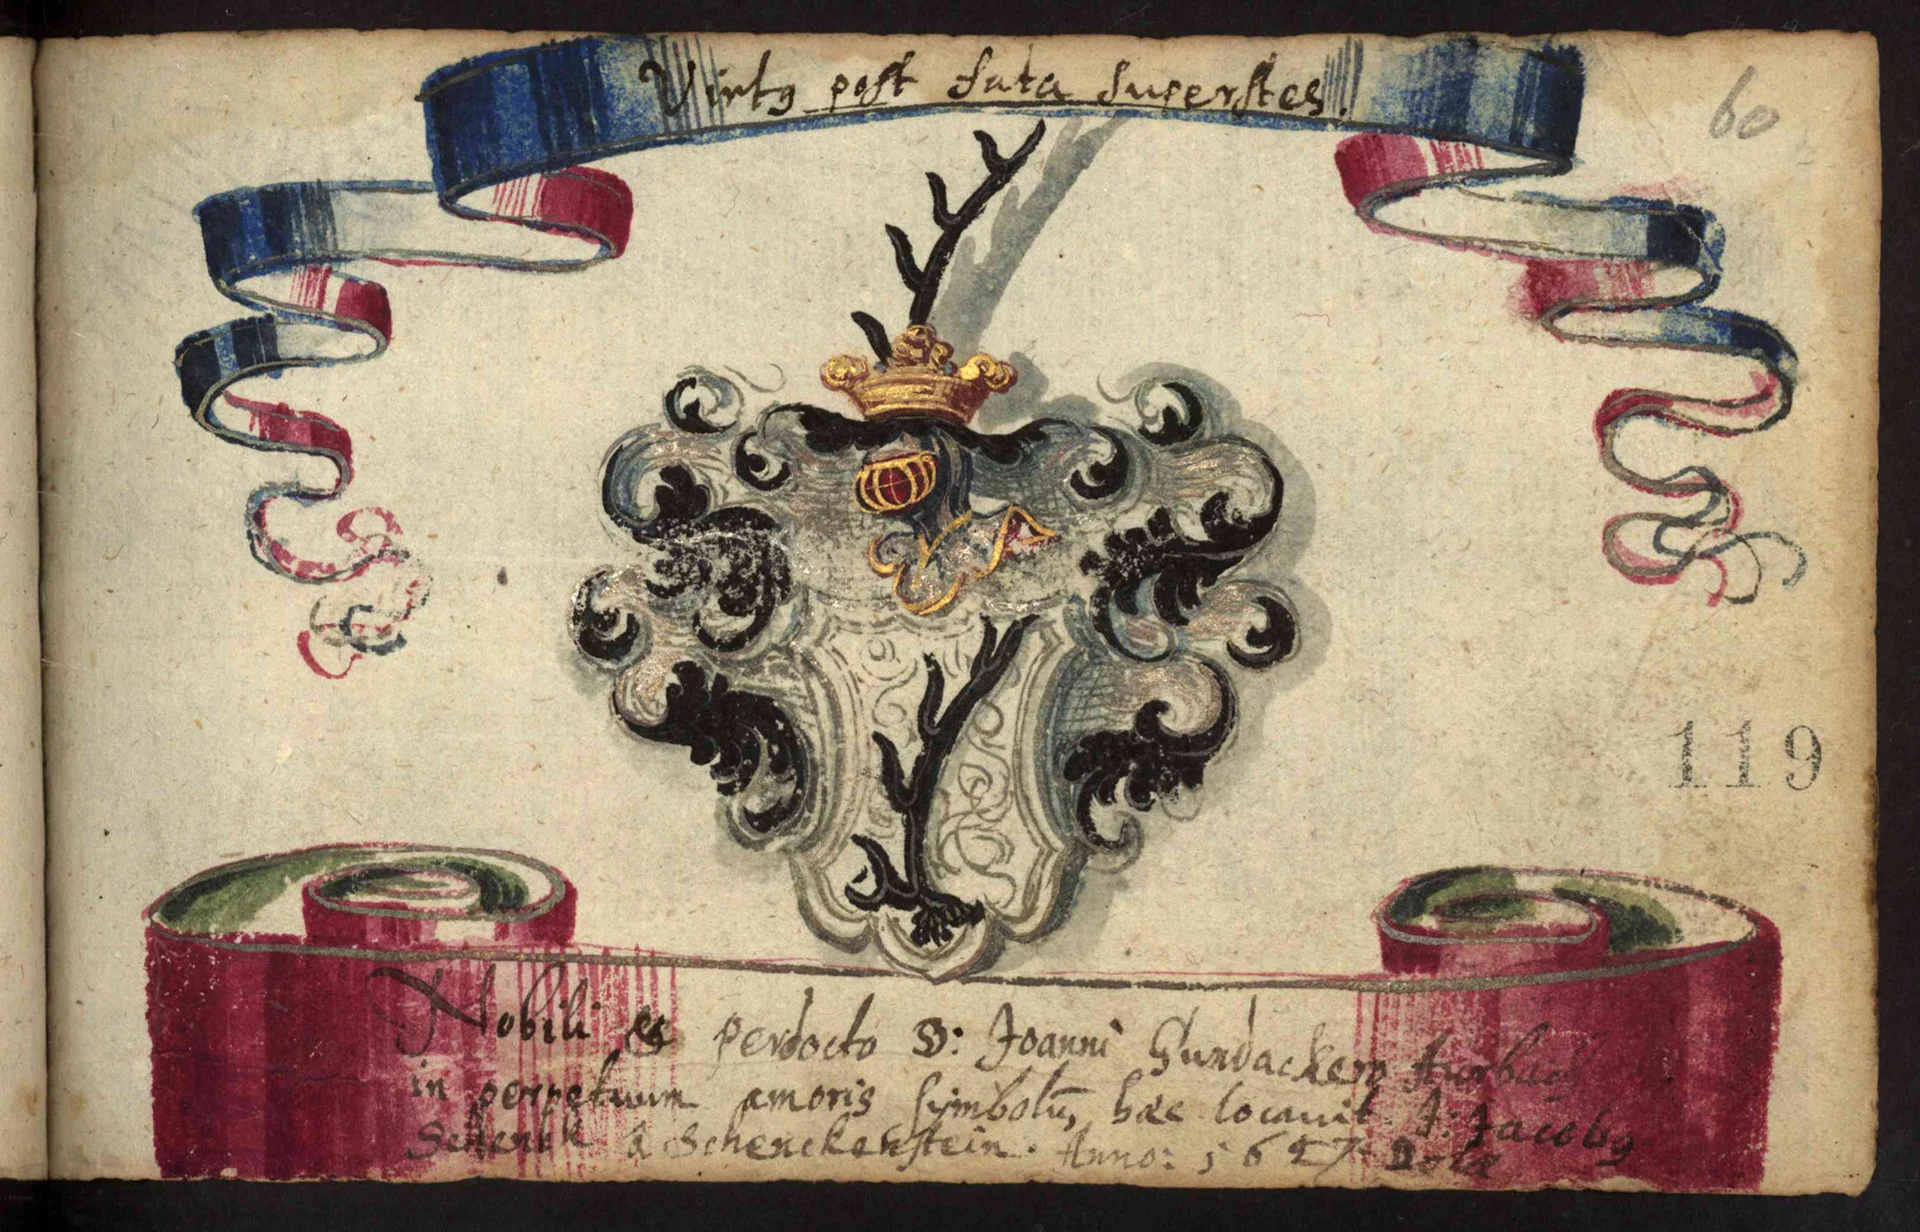 Virtꝰ post fata superstes.
60
119
Nobili et perdocto D: Joanni Gundackero
in perpetuum amoris symbolũ, hæc locavit. J: Jacobꝰ
Schenck â Schenckenstein. Anno: 1627